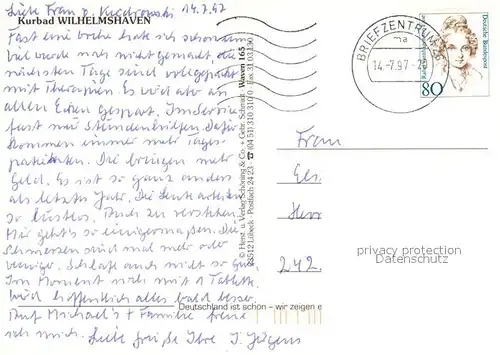 Kurbad WILHELMSHAVEN
Liebe Frau v. 14.7.97
Fast eine Woche habe ich schon
Viel wurde noch nicht gemacht, die
nächsten Tage sind vollgepackt
mit Therapien. Es wird aber an
allen Ecken gespart. Im Service
fast nur Dafür
kommen immer mehr Tages-
patienten. Die bringen mehr
Geld. Es ist so ganz anders
als letztes Jahr. Die Leute arbeiten
so lustlos. Auch zu verstehen.
Mir geht's so einigermaßen. Die
Schmerzen sind mal mehr oder
weniger. Schlafe auch nicht so gut.
Im Moment noch mit 1 Tablette.
Wird hoffentlich alles bald besser.
Auf Michael's + Familie freue
ich mich. Liebe Grüße Ihre I. Jürgens
© Horst u. Verlag Schöning & Co. + Gebr. Schmidt
23512 Lübeck · Postfach 24 23 · ☎ (04 51) 3 10 31 0 · Fax 31 03 50
Waven 165
Deutschland ist schön – wir zeigen e
BRIEFZENTRUM 26
ma
14.-7.97-20
Deutsche Bundespost
80
Frau
Herr
242
privacy protection
Datenschutz